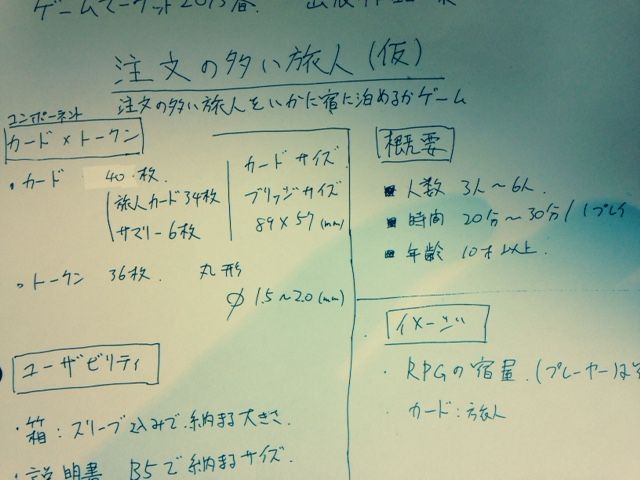 ゲームマーケット2015春. 出版
注文の多い旅人(仮)
注文の多い旅人をいかに宿に泊めるかゲーム
コンポーネント
カード×トークン
・カード 40枚.
旅人カード34枚
サマリー6枚
カードサイズ
ブリッジサイズ
89×57(mm)
・トークン 36枚. 丸形
φ 1.5~2.0(mm)
ユーザビリティ
・箱:スリーブ込みで納まる大きさ.
・説明書 B5で納まるサイズ.
概要
■ 人数 3人~6人.
■ 時間 20分~30分/1プレイ
■ 年齢 10才以上.
イメージ
・RPGの宿屋.(プレーヤーは
・カード:旅人